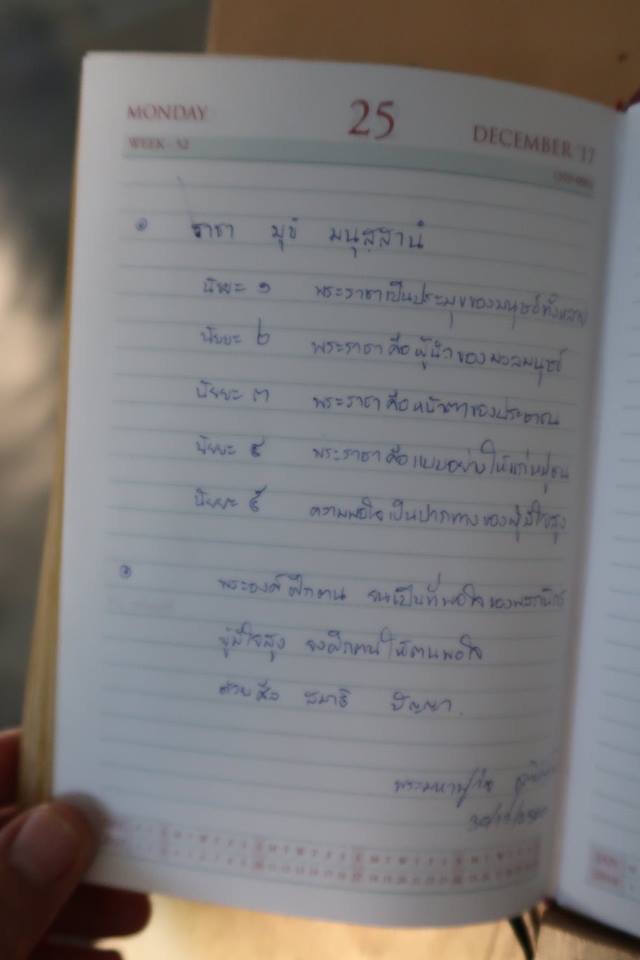 MONDAY 25 DECEMBER '17
WEEK - 52
๑ ราชา มุขํ มนุสฺสานํ
นัยยะ ๑ พระราชาเป็นประมุขของมนุษย์ทั้งหลาย
นัยยะ ๒ พระราชาคือผู้นำของมวลมนุษย์
นัยยะ ๓ พระราชาคือหน้าตาของประชาชน
นัยยะ ๔ พระราชาคือแบบอย่างให้แก่หมู่ชน
นัยยะ ๕ ความพอใจเป็นปากทางของผู้มีใจสูง
๒ พระองค์ฝึกตน จนเป็นที่พอใจของพสกนิกร
ผู้มีใจสูง จงฝึกตนให้ตนพอใจ
ด้วยศีล สมาธิ ปัญญา.
พระมหา